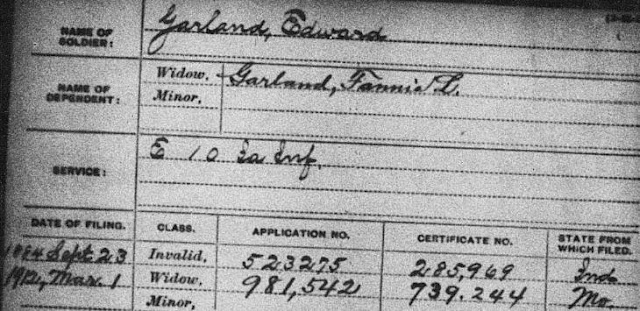 NAME OF SOLDIER: Garland, Edward
NAME OF DEPENDENT: Widow, Garland, Fannie L.
Minor,
SERVICE: E 10 Ia Inf.
DATE OF FILING. CLASS. APPLICATION NO. CERTIFICATE NO. STATE FROM WHICH FILED.
1884 Sept 23 Invalid, 523275 285,969 Ind
1912, Mar. 1 Widow, 981,542 739.244 Mo.
Minor,